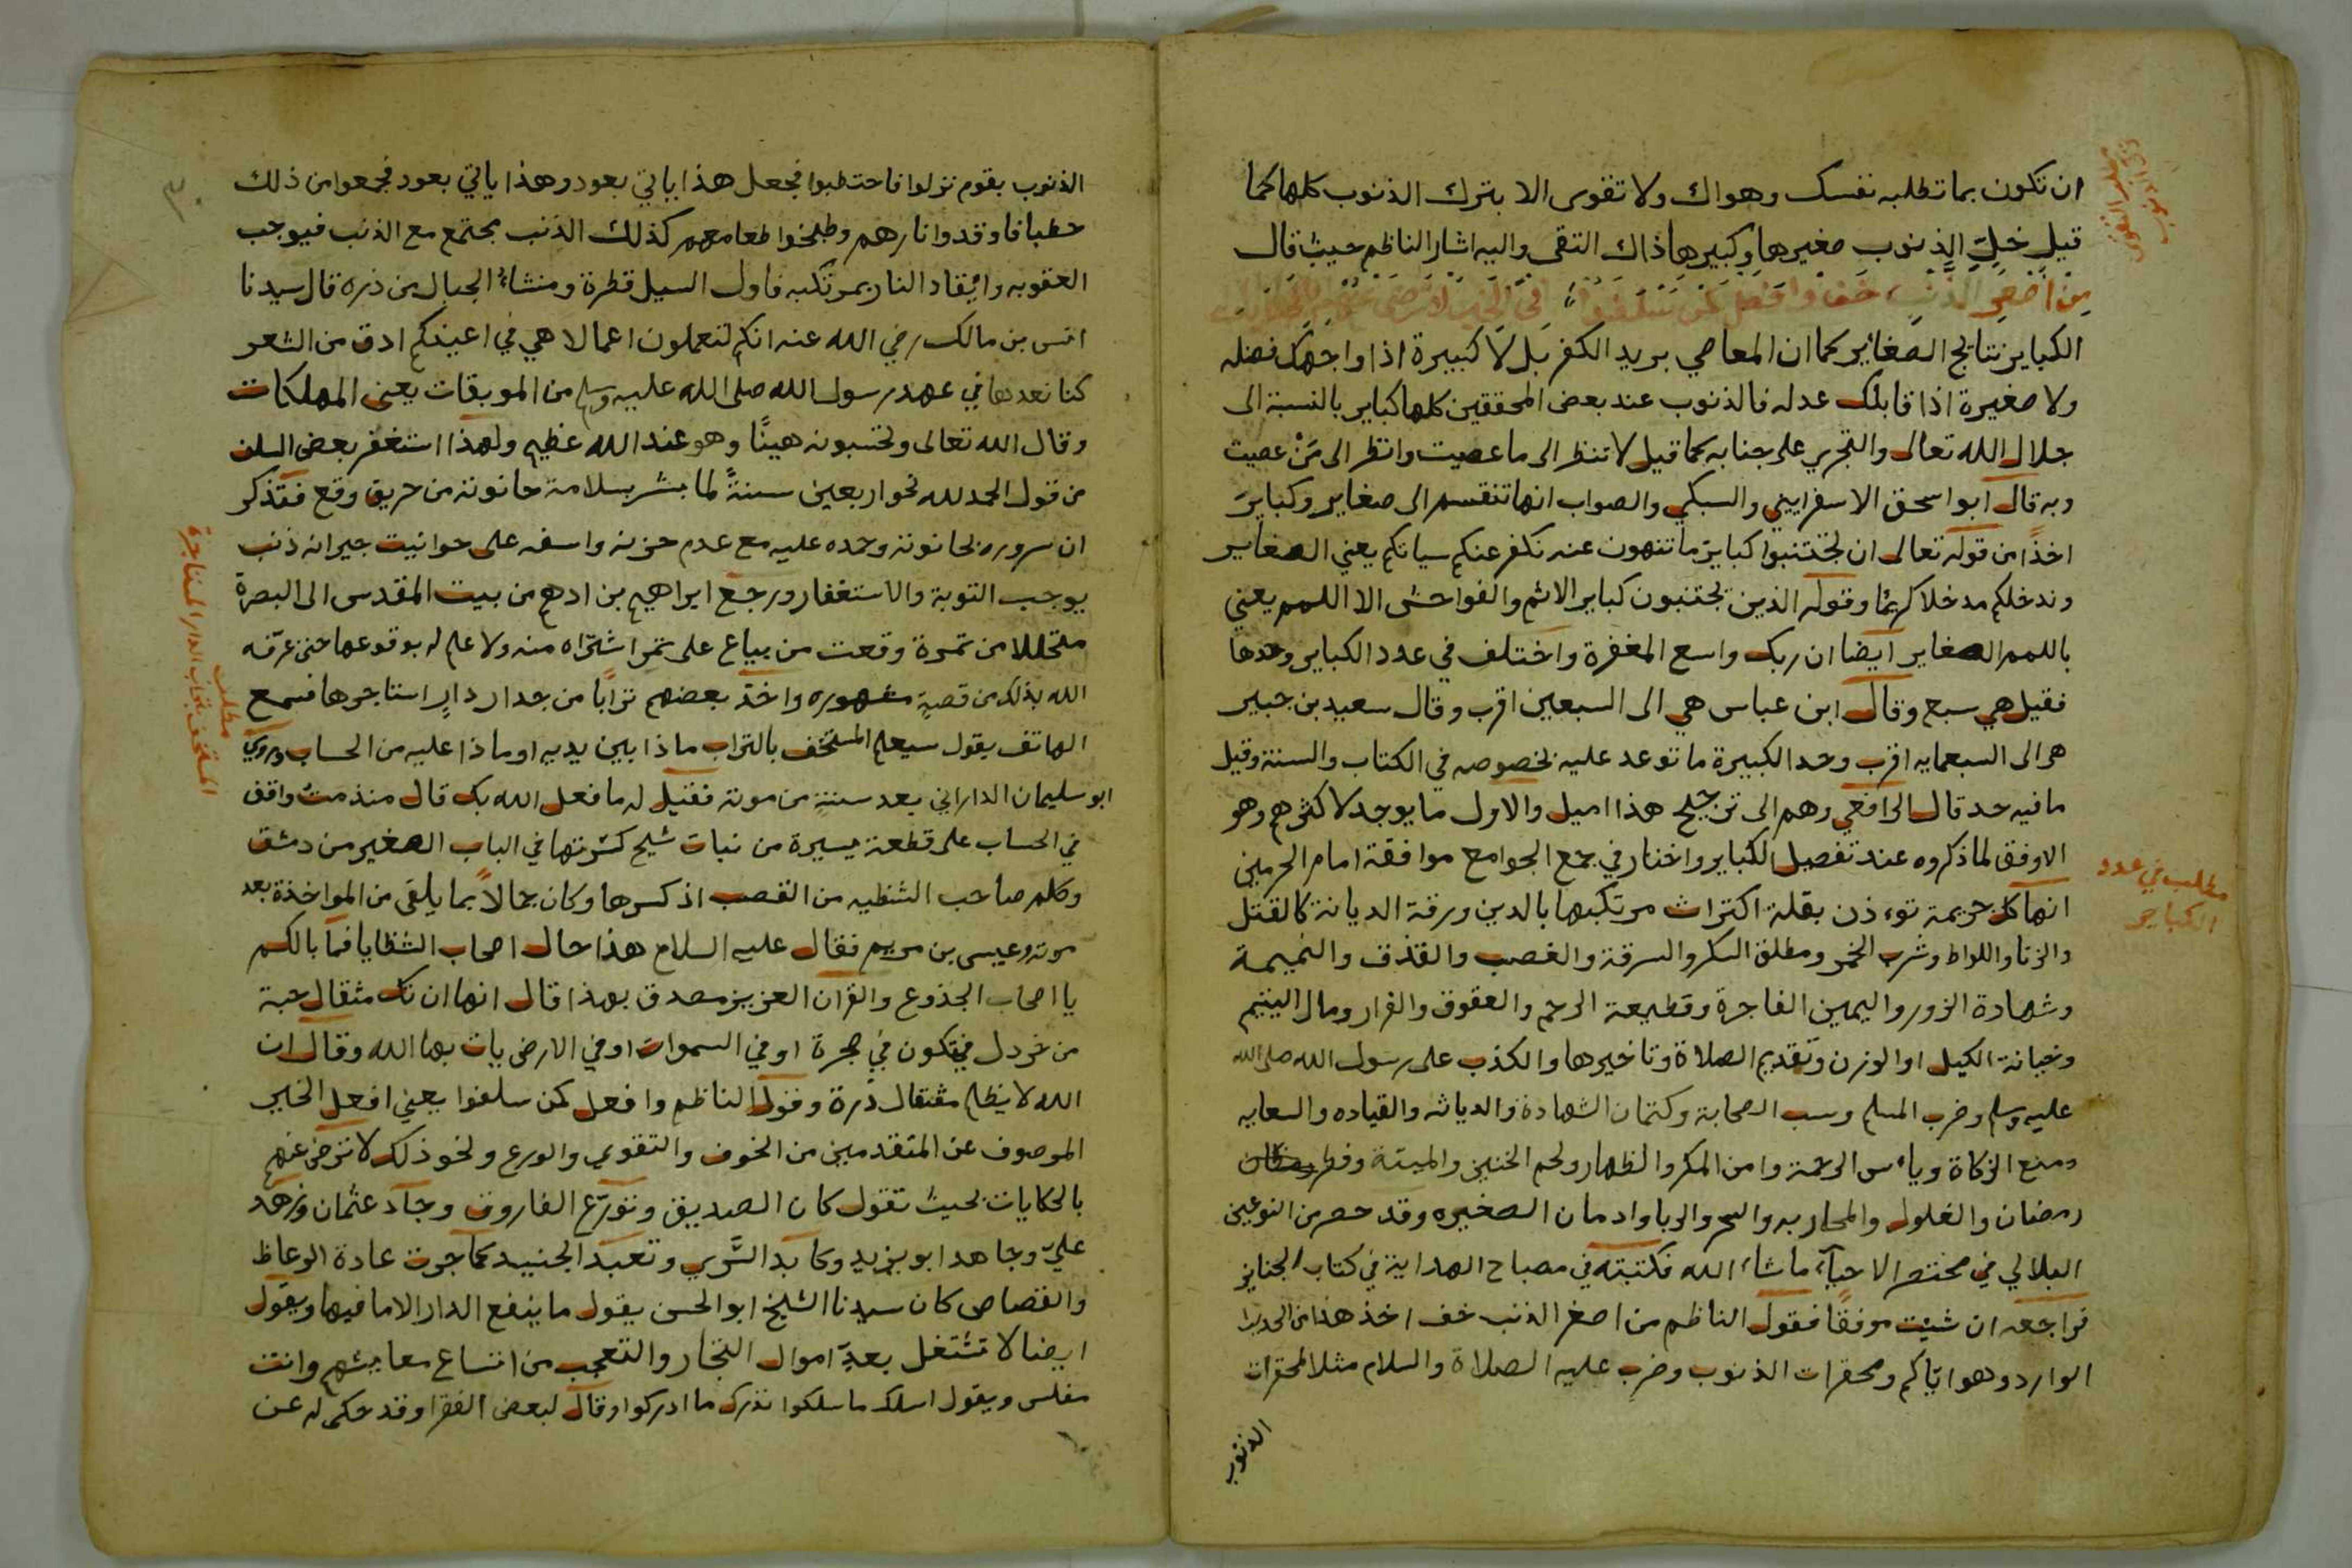 ان تكون بما تطلبه نفسك وهواك ولا تقوى الا بترك الذنوب كلها كما
قيل خل الذنوب صغيرها وكبيرها ذاك التقى واليه اشار الناظم حيث قال
من اصغر الذنب خف وافعل كمن سلفوا في الخير لا ترضى عنهم بالحكايات
الكباير نتايج الصغاير كما ان المعاصي بريد الكفر بل لا كبيرة اذا واجهك فضله
ولا صغيرة اذا قابلك عدله فالذنوب عند بعض المحققين كلها كباير بالنسبة الى
جلال الله تعالى والتجري على جنابه كما قيل لا تنظر الى ما عصيت وانظر الى من عصيت
وبه قال ابو اسحق الاسفرايني والسبكي والصواب انها تنقسم الى صغاير وكباير
اخذا من قوله تعالى ان تجتنبوا كباير ما تنهون عنه نكفر عنكم سياتكم يعني الصغاير
وندخلكم مدخلا كريما وقوله الذين يجتنبون كباير الاثم والفواحش الا اللمم يعني
باللمم الصغاير ايضا ان ربك واسع المغفرة واختلف في عدد الكباير وحدها
فقيل هي سبع وقال ابن عباس هي الى السبعين اقرب وقال سعيد بن جبير
هي الى السبعمايه اقرب وحد الكبيرة ما توعد عليه بخصوصه في الكتاب والسنة وقيل
ما فيه حد قال الرافعي وهم الى ترجيح هذا اميل والاول ما يوجد لاكثرهم وهو
الاوفق لما ذكروه عند تفصيل الكباير واختار في جمع الجوامع موافقة امام الحرمين
انها كل جريمة توءذن بقلة اكتراث مرتكبها بالدين ورقة الديانة كالقتل
والزنا واللواط وشرب الخمر ومطلق السكر والسرقة والغصب والقذف والنميمة
وشهادة الزور واليمين الفاجرة وقطيعة الرحم والعقوق والفرار ومال اليتيم
وخيانة الكيل او الوزن وتقديم الصلاة وتاخيرها والكذب على رسول الله صلى الله
عليه وسلم وضرب المسلم وسب الصحابة وكتمان الشهادة والدياثه والقياده والسعايه
ومنع الزكاة وياءس الرحمة وامن المكر والظهار ولحم الخنير والميتة وفطر
رمضان والغلول والمحاربه والسحر والربا وادمان الصغيره وقد حصر من النوعين
البلالي في مختصر الاحياء ما شاء الله فكتبته في مصباح الهداية في كتاب الجنايز
فراجعه ان شيت موفقا فقول الناظم من اصغر الذنب خف اخذ هذا من الحديث
الوارد وهو اياكم ومحقرات الذنوب وضرب عليه الصلاة والسلام مثلا لمحقرات
الذنوب
مطلب التقوى
ترك الذنوب
مطلب في عدد
الكباير
٣٠
الذنوب بقوم نزلوا فاحتطبوا فجعل هذا ياتي بعود وهذا ياتي بعود فجمعوا من ذلك
حطبا فاوقدوا نارهم وطبخوا طعامهم كذلك الذنب يجتمع مع الذنب فيوجب
العقوبه وايقاد النار بمرتكبه فاول السيل قطرة ومنشاء الجبال من ذره قال سيدنا
انس بن مالك رضي الله عنه انكم لتعملون اعمالا هي في اعينكم ادق من الشعر
كنا نعدها في عهد رسول الله صلى الله عليه وسلم من الموبقات يعني المهلكات
وقال الله تعالى وتحسبونه هينا وهو عند الله عظيم ولهذا استغفر بعض السلف
من قول الحمد لله نحو اربعين سنة لما بشر بسلامة حانوته من حريق وقع فتذكر
ان سروره بحانوته وحمده عليه مع عدم حزنه واسفه على حوانيت جيرانه ذنب
يوجب التوبة والاستغفار ورجع ابراهيم بن ادهم من بيت المقدس الى البصرة
متحللا من تمرة وقعت من بياع على تمر اشتراه منه ولا علم له بوقوعها حتى عرفه
الله بذلك من قصة مشهوره واخذ بعضهم ترابا من جدار دار استاجرها فسمع
الهاتف يقول سيعلم المستخف بالتراب ماذا بين يديه او ماذا عليه من الحساب وروي
ابو سليمان الداراني بعد سنة من موته فقيل له ما فعل الله بك قال منذ مت واقف
في الحساب على قطعة يسيرة من نبات شيح كسرتها في الباب الصغير من دمشق
وكلم صاحب الشظيه من القصب اذ كسرها وكان حمالا بما يلقى من المواخذة بعد
موته وعيسى بن مريم فقال عليه السلام هذا حال اصحاب الشظايا فما بالكم
يا اصحاب الجذوع والقران العزيز مصدق بهذا قال انها ان تك مثقال حبة
من خردل فتكون في صخرة او في السموات او في الارض يات بها الله وقال ان
الله لا يظلم مثقال ذرة وقول الناظم وافعل كمن سلفوا يعني افعل الخير
الموصوف عن المتقدمين من الخوف والتقوى والورع ونحو ذلك لا ترضى عنهم
بالحكايات بحيث تقول كان الصديق وتورع الفاروق وجاد عثمان وزهد
علي وجاهد ابو يزيد وكابد السري وتعبد الجنيد كما جرت عادة الوعاظ
والقصاص كان سيدنا الشيخ ابو الحسن يقول ما ينفع الدار الا ما فيها ويقول
ايضا لا تشتغل بعد اموال التجار والتعجب من اتساع معايشهم وانت
مفلس ويقول اسلك ما سلكوا تدرك ما ادركوا وقال لبعض الفقرا وقد حكى له عن
مطلب
المستخف بتراب الدار المستاجرة